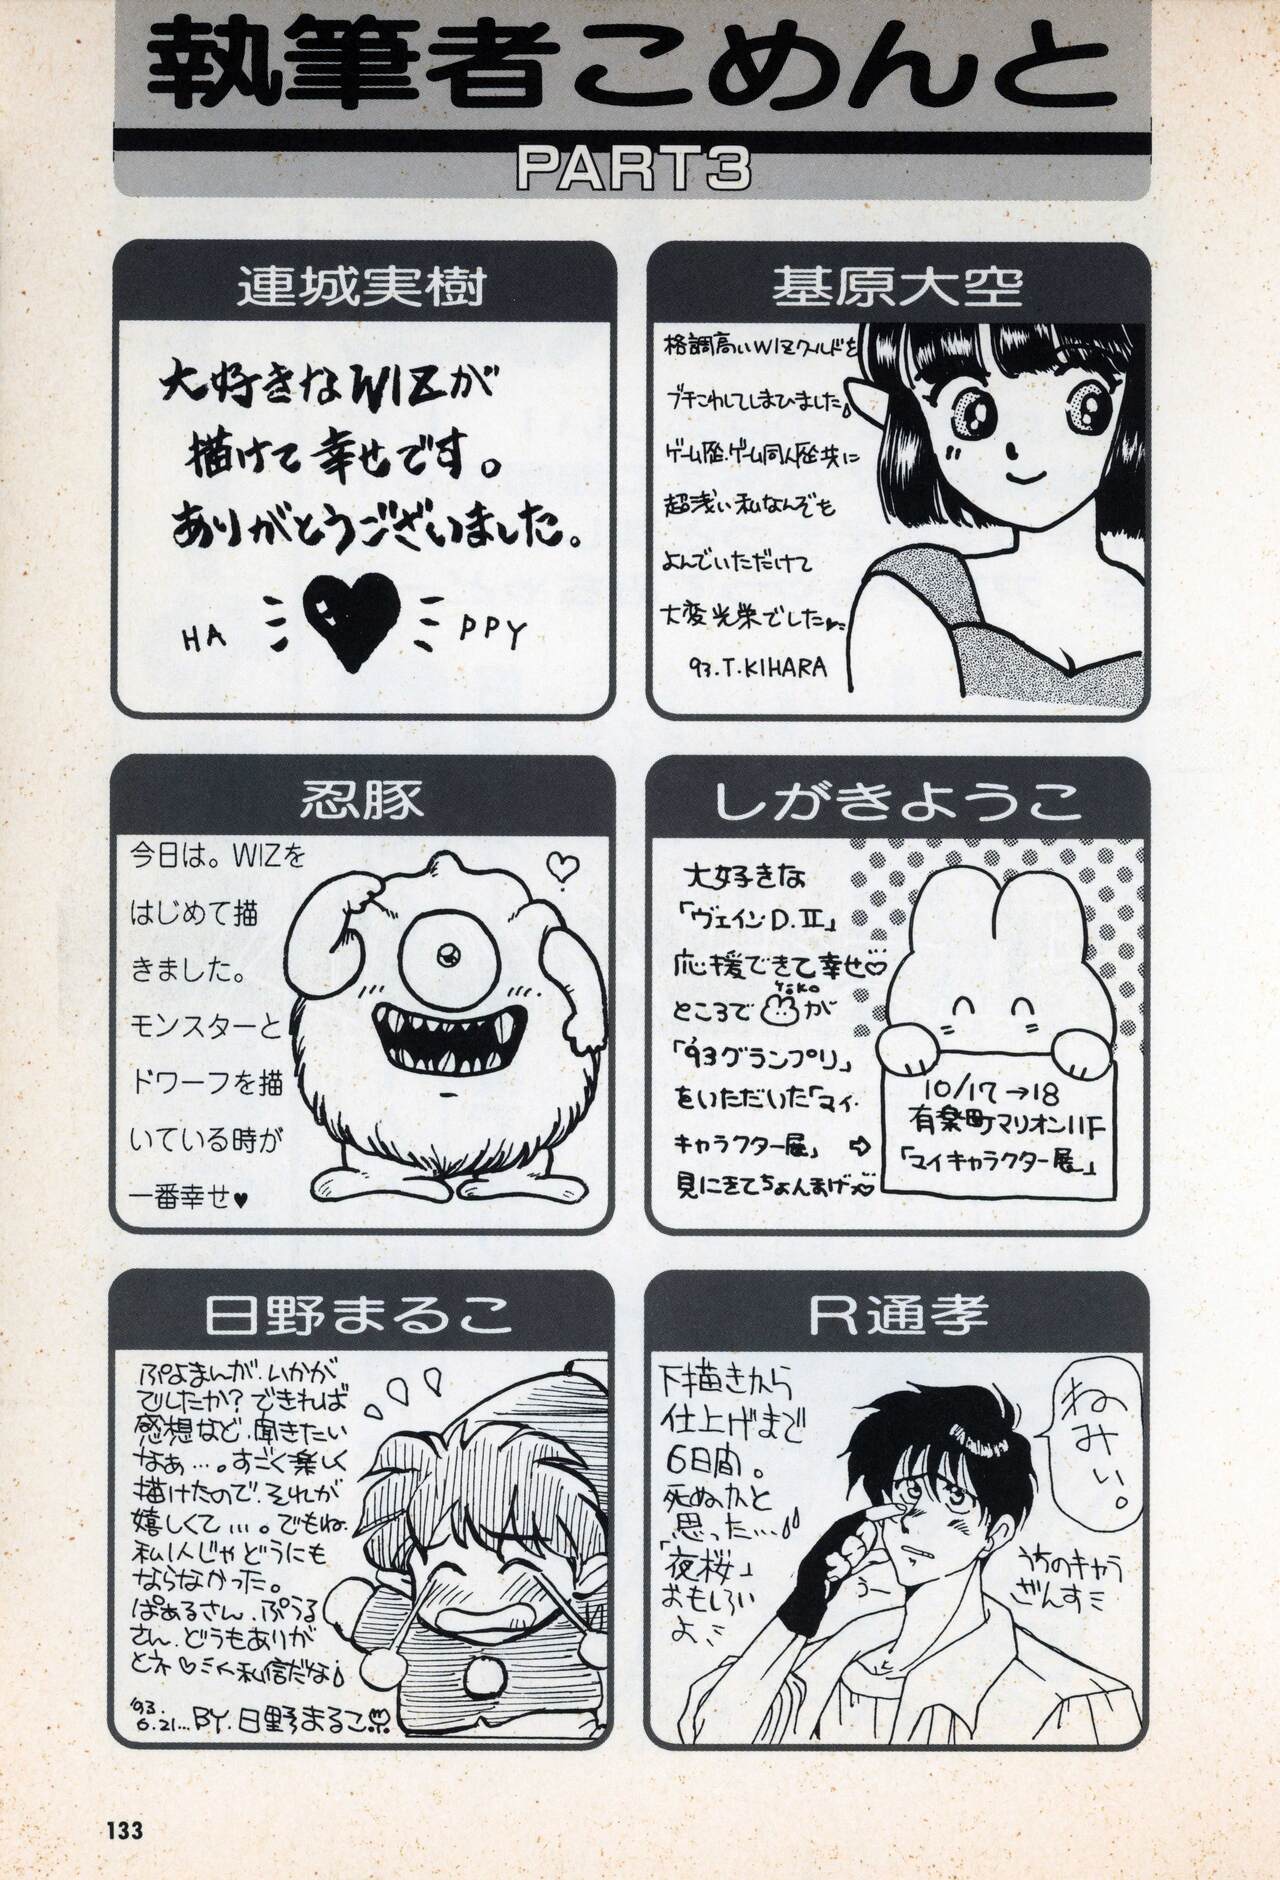 執筆者こめんと
PART3
連城実樹
大好きなWIZが
描けて幸せです。
ありがとうございました。
HA PPY
基原大空
格調高いWIZワールドを
ブチこわしてしまひました
ゲーム歴、ゲーム同人歴共に
超浅い私なんぞを
よんでいただけて
大変光栄でした
93.T.KIHARA
忍豚
今日は。WIZを
はじめて描
きました。
モンスターと
ドワーフを描
いている時が
一番幸せ♥
しがきようこ
大好きな
「ヴェインD.II」
応援できて幸せ♡
YoKo
ところで が
「'93グランプリ」
をいただいた「マイ・
キャラクター展」⇨
見にきてちょんまげ
10/17→18
有楽町マリオン11F
「マイキャラクター展」
日野まるこ
ぷよまんが、いかが
でしたか?できれば
感想など、聞きたい
なぁ…。すごく楽しく
描けたので、それが
嬉しくて…。でもね、
私1人じゃどうにも
ならなかった。
ぱぁるさん、ぷうる
さん、どうもありが
とネ♡ 私信だな
'93.
6.21...BY.日野まるこ
R通孝
下描きから
仕上げまで
6日間。
死ぬかと
思った…
「夜桜」
おもしろい
よ
ねみい。
うー
うちのキャラ
ざんす
133